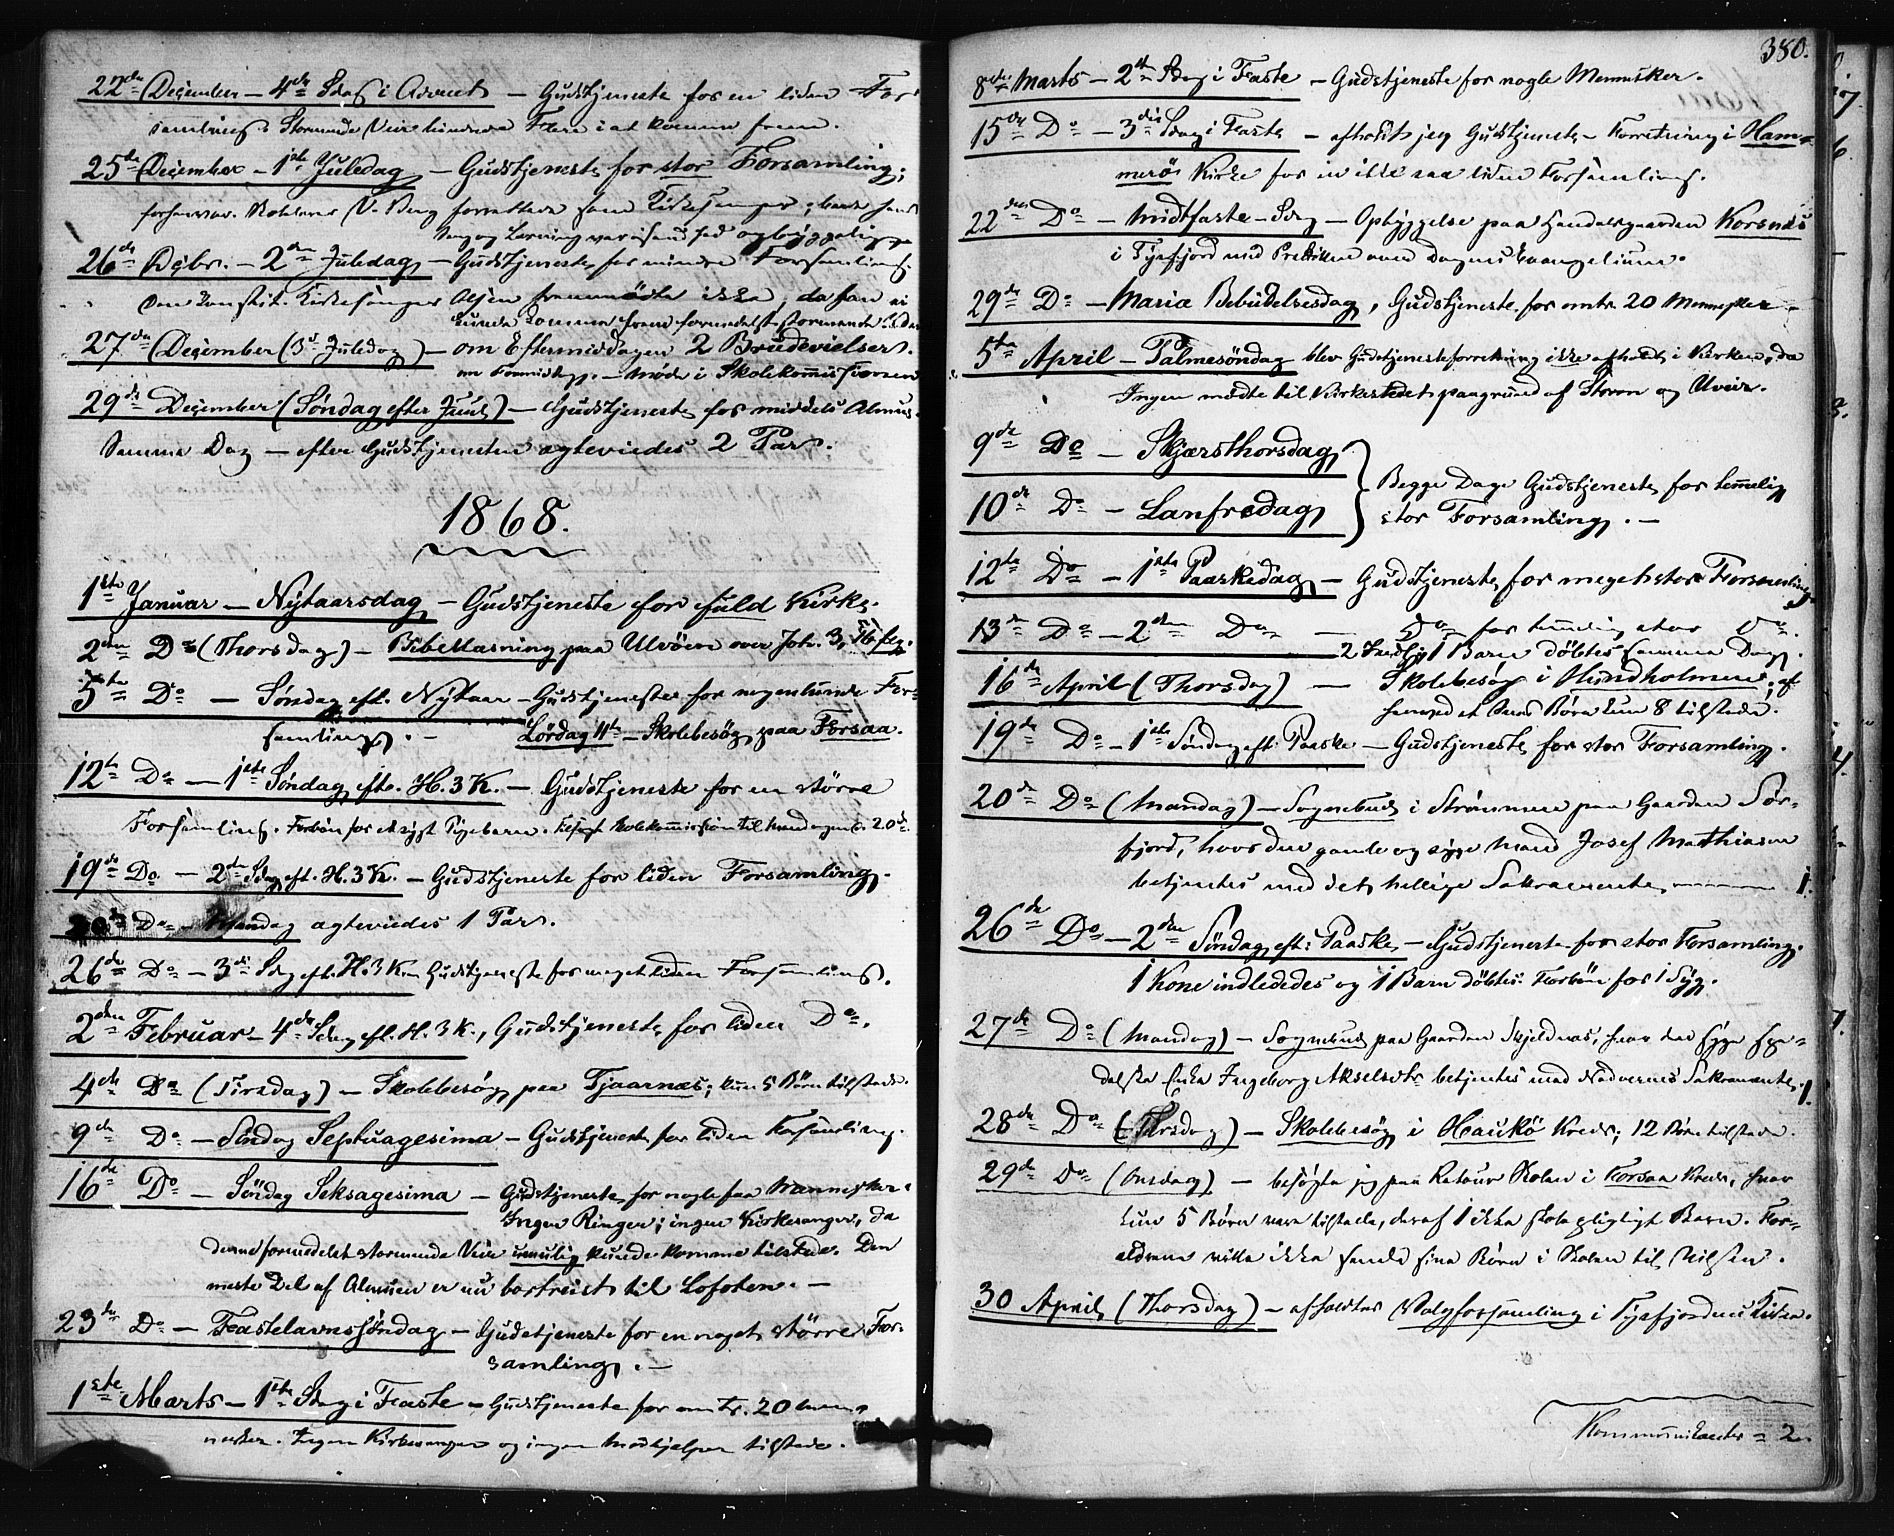 22de December – 4de Sdag i Advent – Gudstjeneste for en liden For-
samling. Stormende Veir hindrede Flere i at komme frem.
25de December – 1ste Juledag – Gudstjeneste for stor Forsamling;
forhenvær. Skolelærer Berg forrettede som Kirkesanger; baade hans
Sang og Læsning var opbyggelige
26de Dcbr. – 2den Juledag – Gudstjeneste for mindre Forsamling.
Den konstit. Kirkesanger Olsen fremmødte ikke, da han ei
kunde komme frem formedelst stormende
27de December (3d Juledag) – om Eftermiddagen 2 Brudevielser.
om Formidd. – Møde i Skolekommissionen
29de December (Søndag efter Juul) – Gudstjeneste for middels Almue.
Samme Dag – efter Gudstjenesten ægteviedes 2 Par.
1868.
1ste Januar – Nytaarsdag – Gudstjeneste for fuld Kirke.
2den Do (Thorsdag) – Bibellæsning paa Ulvöen over Joh. 3, 16 flg.
5te Do – Søndag eft. Nytaar – Gudstjeneste for nogenlunde For-
samling. – Lørdag 11te – Skolebesøg paa Forsaa.
12te Do – 1ste Søndag eft. H. 3 K. – Gudstjeneste for en større
Forsamling. Forbön for et sygt Pigebarn. Skolekommission til Mandagen d. 20de
19de Do – 2den Sdag eft. H. 3 K. – Gudstjeneste for liden Forsamling.
20de Do – Mandag ægteviedes 1 Par.
26de Do – 3die Sdag eft. H. 3 K. – Gudstjeneste for meget liden Forsamling.
2den Februar – 4de Sdag eft. H. 3 K., Gudstjeneste for liden Do.
4de Do (Tirsdag) – Skolebesøg paa Tjaarnæs; kun 5 Børn tilstede.
9de Do – Søndag Septuagesima – Gudstjeneste for liden Forsamling.
16de Do – Søndag Seksagesima – Gudstjeneste for nogle faa Mennesker.
Ingen Ringer; ingen Kirkesanger, da
denne formedelst stormende Veir umulig kunde komme tilstede. Den
meste Del af Almuen er nu bortreist til Lofoten. –
23de Do – Fastelavnssøndag – Gudstjeneste for en noget større For-
samling. –
1ste Marts – 1ste Sdag i Faste – Gudstjeneste for omtr. 20 Men-
nesker. Ingen Kirkesanger og ingen Medhjelper tilstede.
380.
8de Marts – 2den Sdag i Faste – Gudstjeneste for nogle Mennesker.
15de Do – 3die Sdag i Faste – afholdt jeg Gudstjeneste-Forretning i Ham-
merö Kirke for en ikke saa liden Forsamling.
22de Do – Midtfaste-Sdag – Opbyggelse paa Handelsgaarden Korsnæs
i Tysfjord med Prædiken over Dagens Evangelium.
29de Do – Mariæ Bebudelsesdag, Gudstjeneste for omtr. 20 Mennesker.
5te April – Palmesøndag blev Gudstjenesteforretning ikke afholdt i Kirken, da
Ingen mødte til Kirkestedet paagrund af Storm og Uveir.
9de Do – Skjærsthorsdag
Begge Dage Gudstjeneste for temelig
10de Do – Lanfredag
stor Forsamling. –
12te Do – 1ste Paaskedag – Gudstjeneste for meget stor Forsamling.
13de Do – 2den Do – Do for temelig stor Do.
1 Barn döbtes samme Dag.
16de April (Thorsdag) – Skolebesøg i Hundholmen; af
Børn kun 8 tilstede.
19de Do – 1ste Søndag eft. Paaske – Gudstjeneste for stor Forsamling.
20de Do (Mandag) – Sognebud i Strømmen paa Gaarden Sør-
fjord, hvor den gamle og syge Mand Josef Mathiasen
betjentes med det hellige Sakramente 1.
26de Do – 2den Søndag eft: Paaske – Gudstjeneste for stor Forsamling.
1 Kone indlededes og 1 Barn döbtes. Forbön for 1 Syg.
27de Do (Mandag) – Sognebud paa Gaarden Skjeldnæs, hvor den syge
Enke Ingeborg Akselsdtr betjentes med Nadverens Sakramente. 1.
28de Do (Tirsdag) – Skolebesøg i Haukö Kreds; 12 Børn tilstede.
29de Do (Onsdag) – besøgte jeg paa Retour Skolen i Forsaa Kreds, hvor
kun 5 Børn vare tilstede, deraf 1 ikke skolepligtigt Barn. For-
ældrene ville ikke sende sine Børn i Skolen til Nilsen.
30 April (Thorsdag) – afholdtes Valgforsamling i Tysfjordens Kirke.
Kommunikanter = 2.